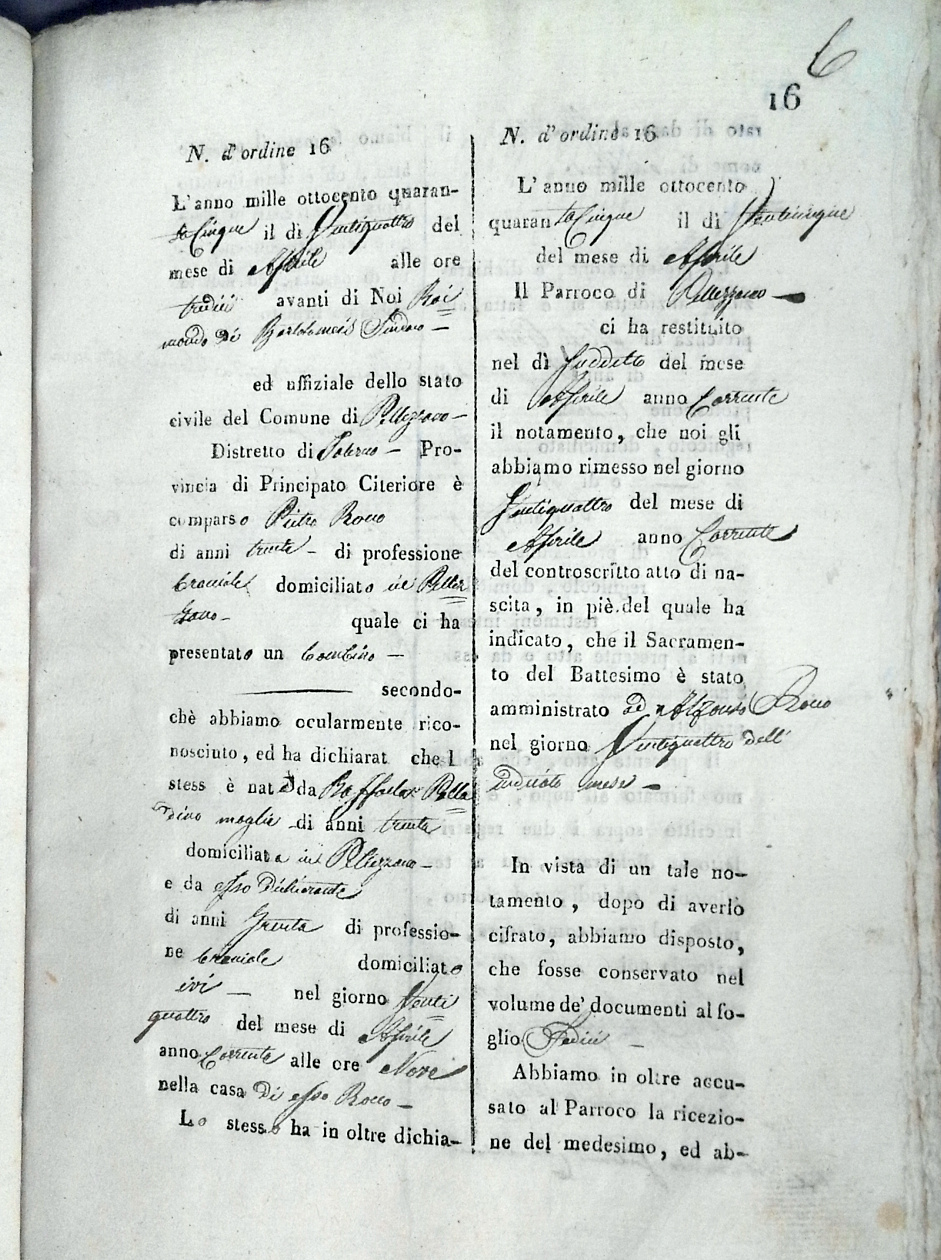 6
16
N. d'ordine 16
L'anno mille ottocento quaran-
tacinque il di Ventiquattro del
mese di Aprile alle ore
tredici avanti di Noi Rai
mondo De Bartolomeis Sindaco —
ed uffiziale dello stato
civile del Comune di Pellezzano —
Distretto di Salerno — Pro-
vincia di Principato Citeriore è
comparso Pietro Rocco
di anni trenta — di professione
domiciliato in Pellez
zano — quale ci ha
presentato un bambino —
secondo-
chè abbiamo ocularmente rico-
nosciuto, ed ha dichiarat che l
stess è nato da Raffaela
moglie di anni trenta
domiciliata in Pellezzano —
e da esso Dichiarante
di anni trenta di professio-
ne domiciliato
ivi — nel giorno Venti
quattro del mese di Aprile
anno Corrente alle ore Nove
nella casa di esso Rocco —
Lo stesso ha in oltre dichia-
N. d'ordine 16
L'anno mille ottocento
quarantacinque il di Venticinque
del mese di Aprile
Il Parroco di Pellezzano —
ci ha restituito
nel dì suddetto del mese
di Aprile anno Corrente
il notamento, che noi gli
abbiamo rimesso nel giorno
Ventiquattro del mese di
Aprile anno Corrente
del controscritto atto di na-
scita, in piè del quale ha
indicato, che il Sacramen-
to del Battesimo è stato
amministrato ad Alfonso Rocco
nel giorno Ventiquattro dell'
indicato mese —
In vista di un tale no-
tamento, dopo di averlo
cifrato, abbiamo disposto,
che fosse conservato nel
volume de' documenti al fo-
glio Sedici —
Abbiamo in oltre accu-
sato al Parroco la ricezio-
ne del medesimo, ed ab-